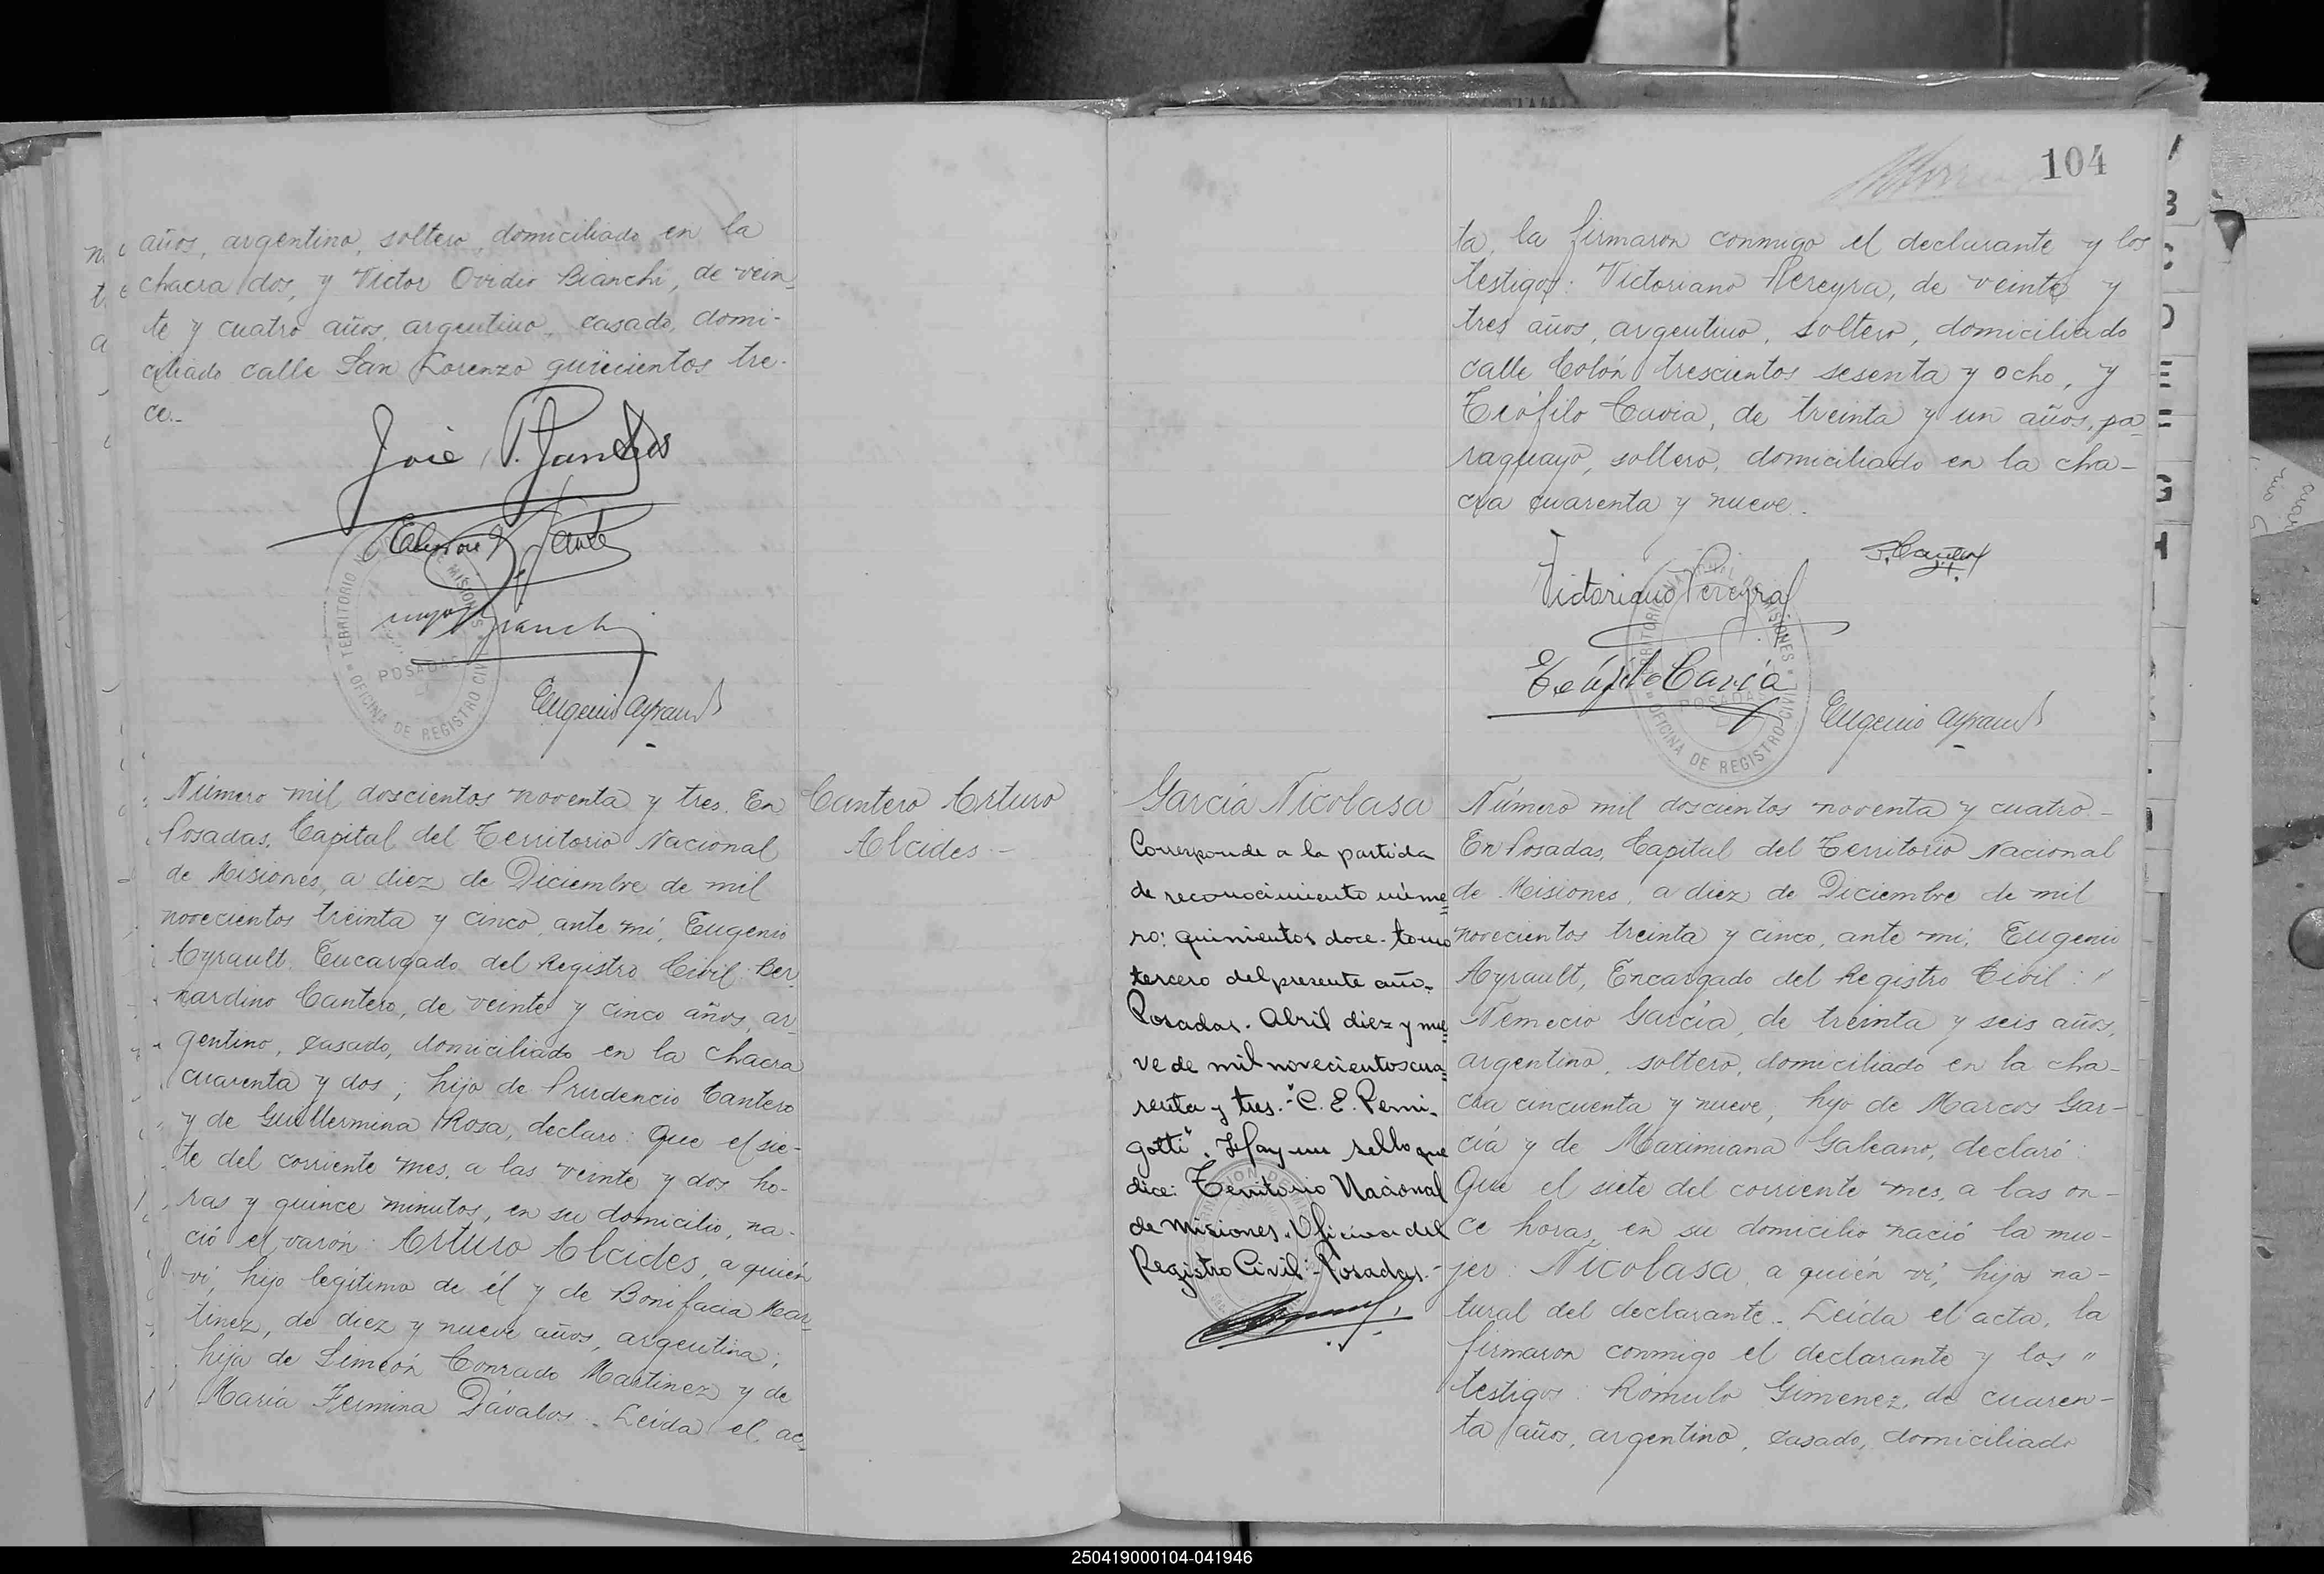 años, argentino, soltero, domiciliado en la
chacra dos, y Víctor Ovidio Bianchi, de vein-
te y cuatro años, argentino, casado, domi-
ciliado calle San Lorenzo quinientos tre-
ce.-
José P.
Bianchi
TERRITORIO NACIONAL DE MISIONES
POSADAS
OFICINA DE REGISTRO CIVIL
Eugenio Ayrault
Número mil doscientos noventa y tres. En
Posadas, Capital del Territorio Nacional
de Misiones, a diez de Diciembre de mil
novecientos treinta y cinco, ante mí, Eugenio
Ayrault, Encargado del Registro Civil: Ber-
nardino Cantero, de veinte y cinco años, ar-
gentino, casado, domiciliado en la chacra
cuarenta y dos, hijo de Prudencio Cantero
y de Guillermina Rosa, declaró: Que el sie-
te del corriente mes, a las veinte y dos ho-
ras y quince minutos, en su domicilio, na-
ció el varón: Arturo Alcides, a quién
ví, hijo legítimo de él y de Bonifacia Mar-
tinez, de diez y nueve años, argentina,
hija de Simeón Conrado Martinez y de
María Fermina Dávalos.- Leída el ac-
Cantero Arturo
Alcides.-
104
ta, la firmaron conmigo el declarante y los
testigos: Victoriano Pereyra, de veinte y
tres años, argentino, soltero, domiciliado
calle Colón trescientos sesenta y ocho, y
Teófilo Cavia, de treinta y un años, pa-
raguayo, soltero, domiciliado en la cha-
cra cuarenta y nueve.
Victoriano Pereyra
Teófilo Cavia
TERRITORIO NACIONAL DE MISIONES
POSADAS
OFICINA DE REGISTRO CIVIL
Eugenio Ayrault
García Nicolasa
Corresponde a la partida
de reconocimiento núme=
ro: quinientos doce- tomo
tercero del presente año.-
Posadas. Abril diez y nue=
ve de mil novecientos cua=
renta y tres.-"C. E. Perni-
gotti". Hay un sello que
dice: Territorio Nacional
de Misiones. Oficina del
Registro Civil:- Posadas.-
Número mil doscientos noventa y cuatro.-
En Posadas, Capital del Territorio Nacional
de Misiones, a diez de Diciembre de mil
novecientos treinta y cinco, ante mí, Eugenio
Ayrault, Encargado del Registro Civil: "
Nemecio García, de treinta y seis años,
argentino, soltero, domiciliado en la cha-
cra cincuenta y nueve, hijo de Marcos Gar-
cía y de Maximiana Galeano, declaró:
Que el siete del corriente mes, a las on-
ce horas, en su domicilio nació la mu-
jer: Nicolasa, a quién ví, hija na-
tural del declarante.- Leída el acta, la
firmaron conmigo el declarante y los "
testigos: Rómulo Gimenez, de cuaren-
ta años, argentino, casado, domiciliado
250419000104-041946